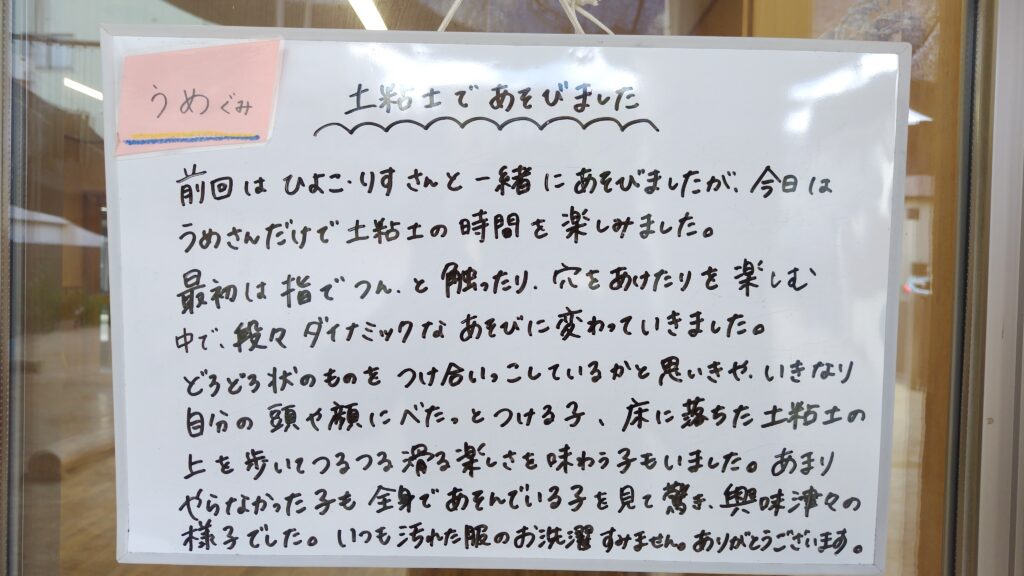 うめぐみ
土粘土であそびました
前回は ひよこ・りすさんと一緒にあそびましたが、今日は
うめさんだけで土粘土の時間を楽しみました。
最初は指でつん、と触ったり、穴をあけたりを楽しむ
中で、段々ダイナミックなあそびに変わっていきました。
どろどろ状のものをつけ合いっこしているかと思いきや、いきなり
自分の頭や顔にべたっとつける子、床に落ちた土粘土の
上を歩いてつるつる滑る楽しさを味わう子もいました。あまり
やらなかった子も全身であそんでいる子を見て驚き、興味津々の
様子でした。いつも汚れた服のお洗濯すみません。ありがとうございます。